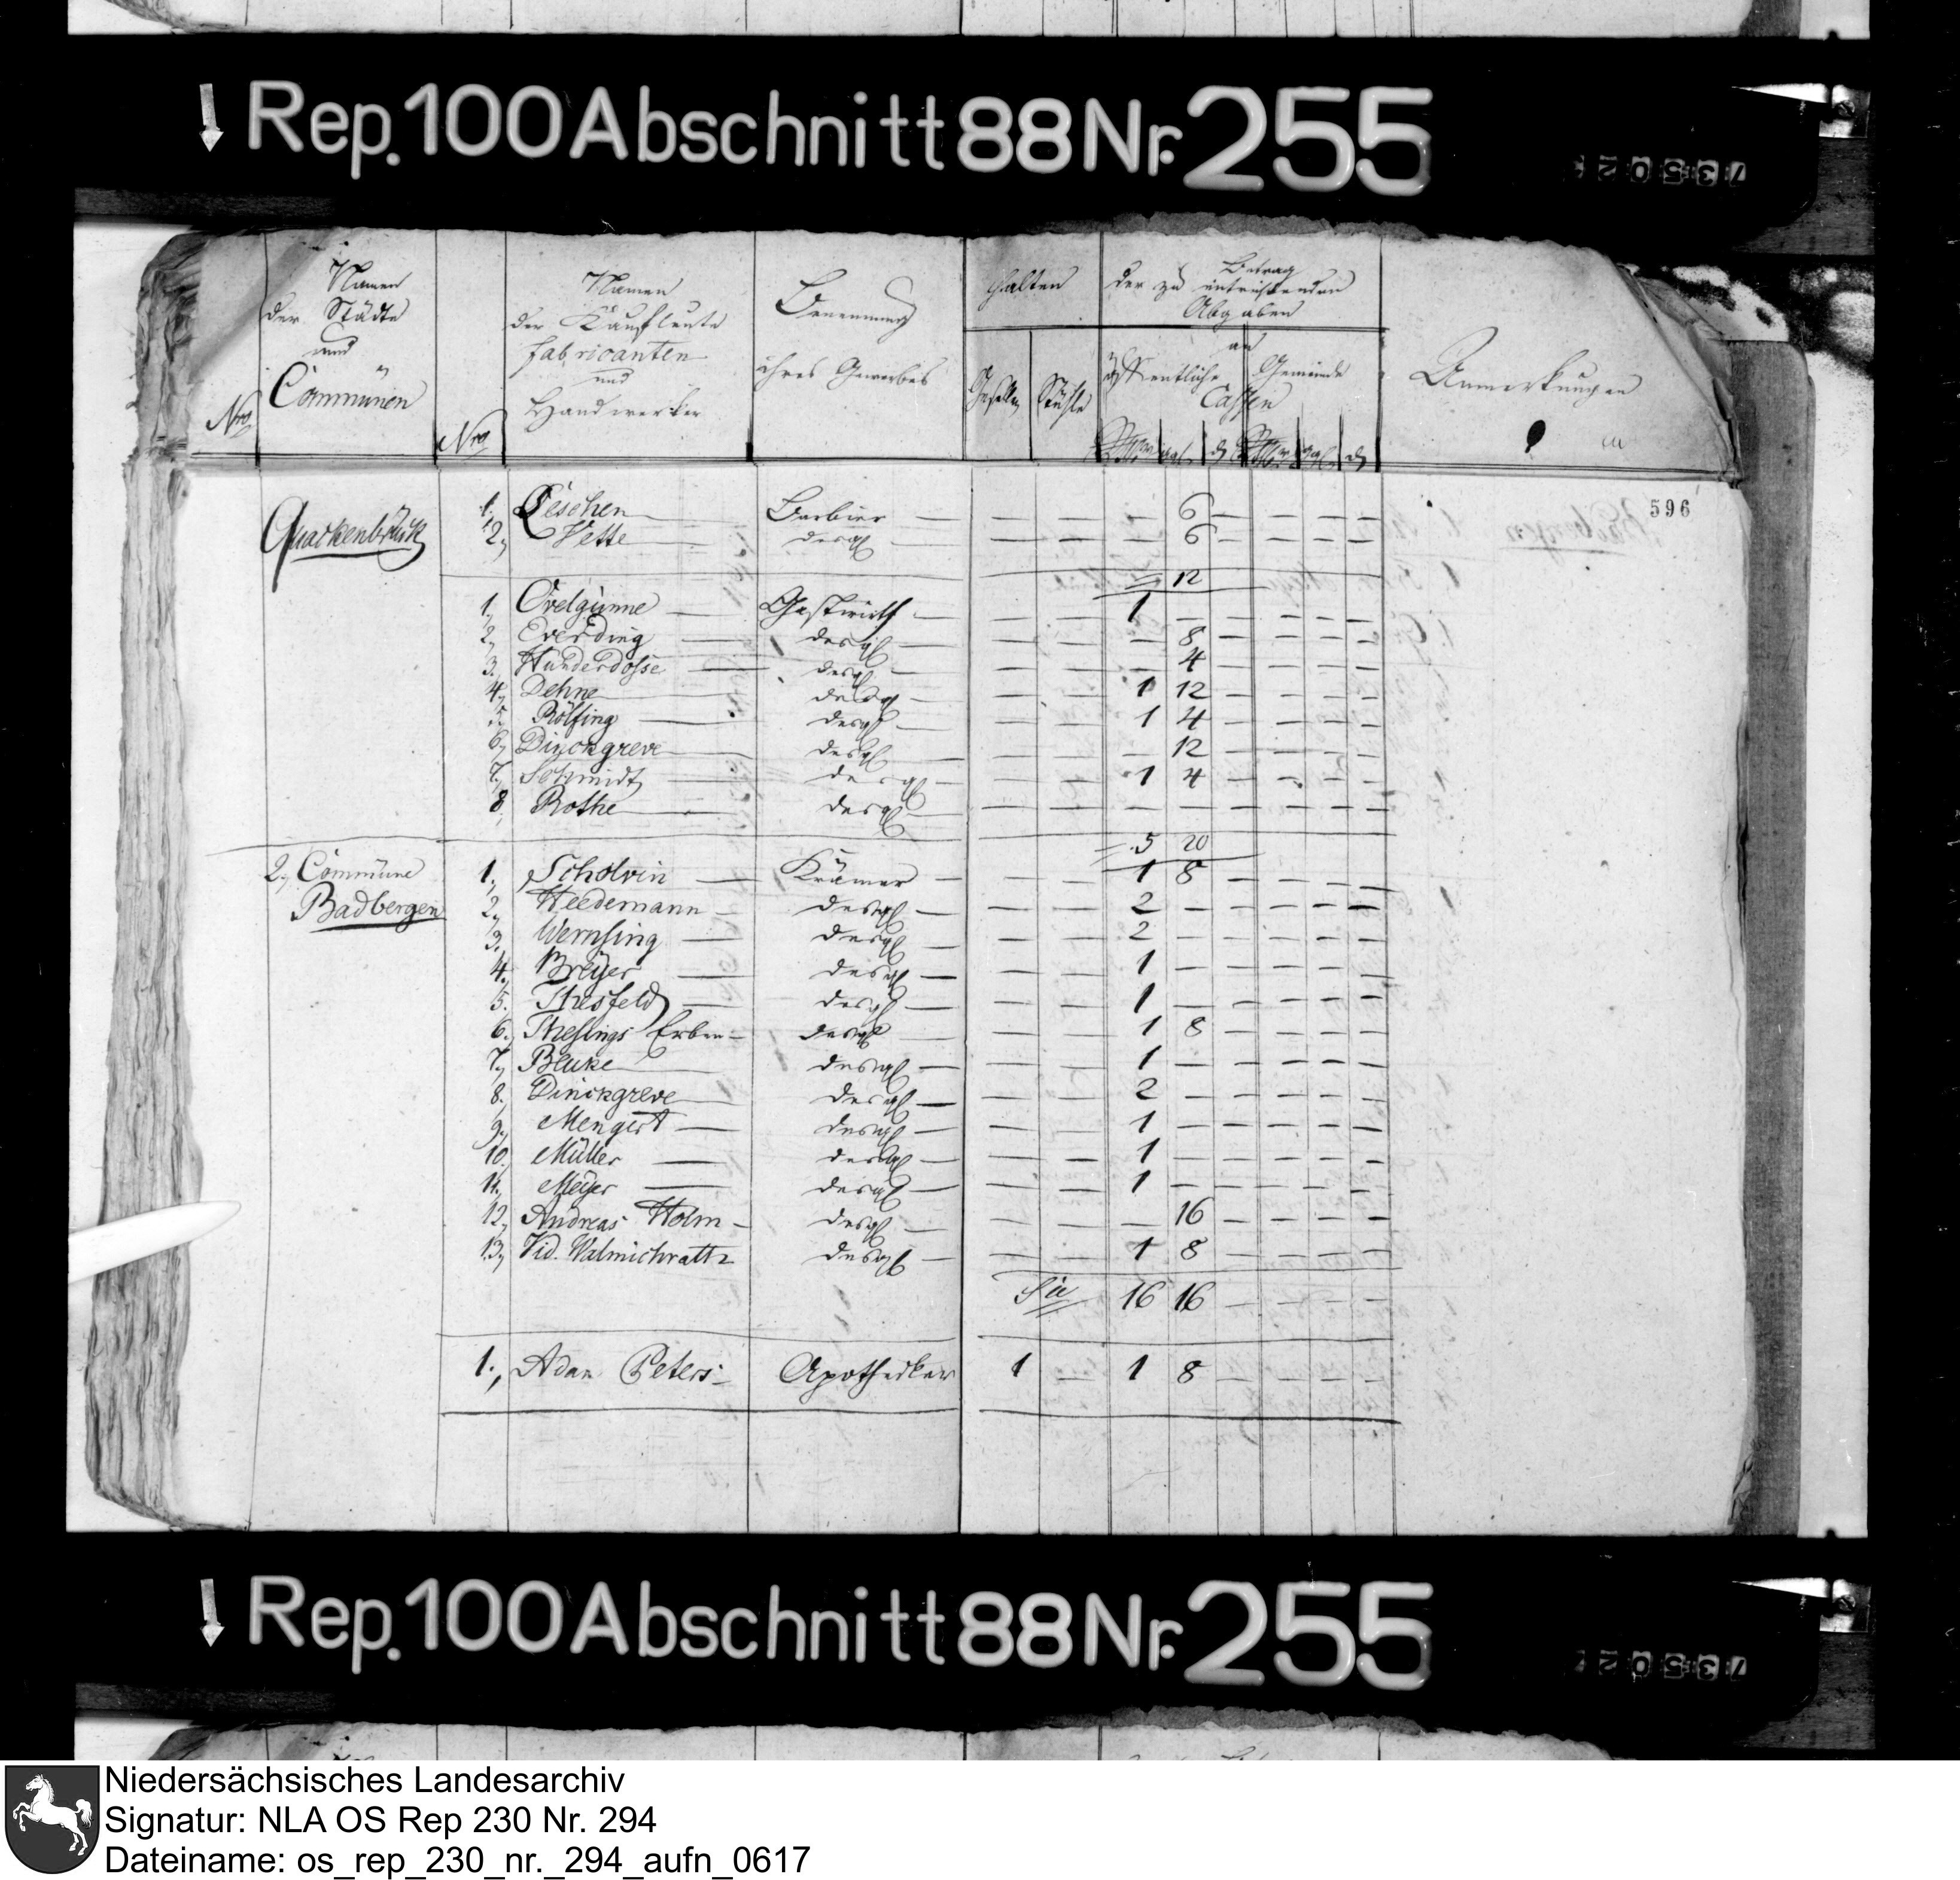 Rep. 100 Abschnitt 88 Nr. 255
73502
Nro
Namen der Städte und Commünen
Nro
Namen der Kaufleute fabricanten und Handwerker
Benennung ihres Gewerbes
halten
Gesellen Stühle
Betrag der zu entrichtenden Abgaben
an
öffentliche Gemeinde
Cassen
ggl. d ggl. d
Anmerkungen
596
Quackenbrück 1. Oeschen — Barbier — — — — 6 — — — —
2, Vette — desgl — — — — 6 — — — —
12
1, Ovelgünne — Gastwirth — — — 1 — — — — —
2, Everding — desgl — — — — 8 — — — —
3. Hunderdosse — desgl — — — — 4 — — — —
4, Dehne — desgl — — — 1 12 — — — —
5. Rölfing — desgl — — — 1 4 — — — —
6, Dinckgreve — desgl — — — — 12 — — — —
7, Schmidt — desgl — — — 1 4 — — — —
8, Rothe — desgl — — — — — — — — —
5 20
2, Commüne 1. Scholvin — Krämer — — — 1 8 — — — —
Badbergen 2, Heedemann — desgl — — — 2 — — — — —
3. Wernsing — desgl — — — 2 — — — — —
4. Breyer — desgl — — — 1 — — — — —
5. Thesfeld — desgl — — — 1 — — — — —
6. Thesings Erben — desgl — — — 1 8 — — — —
7, Beuke — desgl — — — 1 — — — — —
8. Dinckgreve — desgl — — — 2 — — — — —
9, Mengert — desgl — — — 1 — — — — —
10. Müller — desgl — — — 1 — — — — —
11. Meyer — desgl — — — 1 — — — — —
12, Andreas Holm — desgl — — — — 16 — — — —
13, Vid. — desgl — — — 1 8 — — — —
Sa 16 16 — — — —
1. Adam Peters — Apothecker 1 — 1 8 — — — —
Rep. 100 Abschnitt 88 Nr. 255
73502
Niedersächsisches Landesarchiv
Signatur: NLA OS Rep 230 Nr. 294
Dateiname: os_rep_230_nr._294_aufn_0617